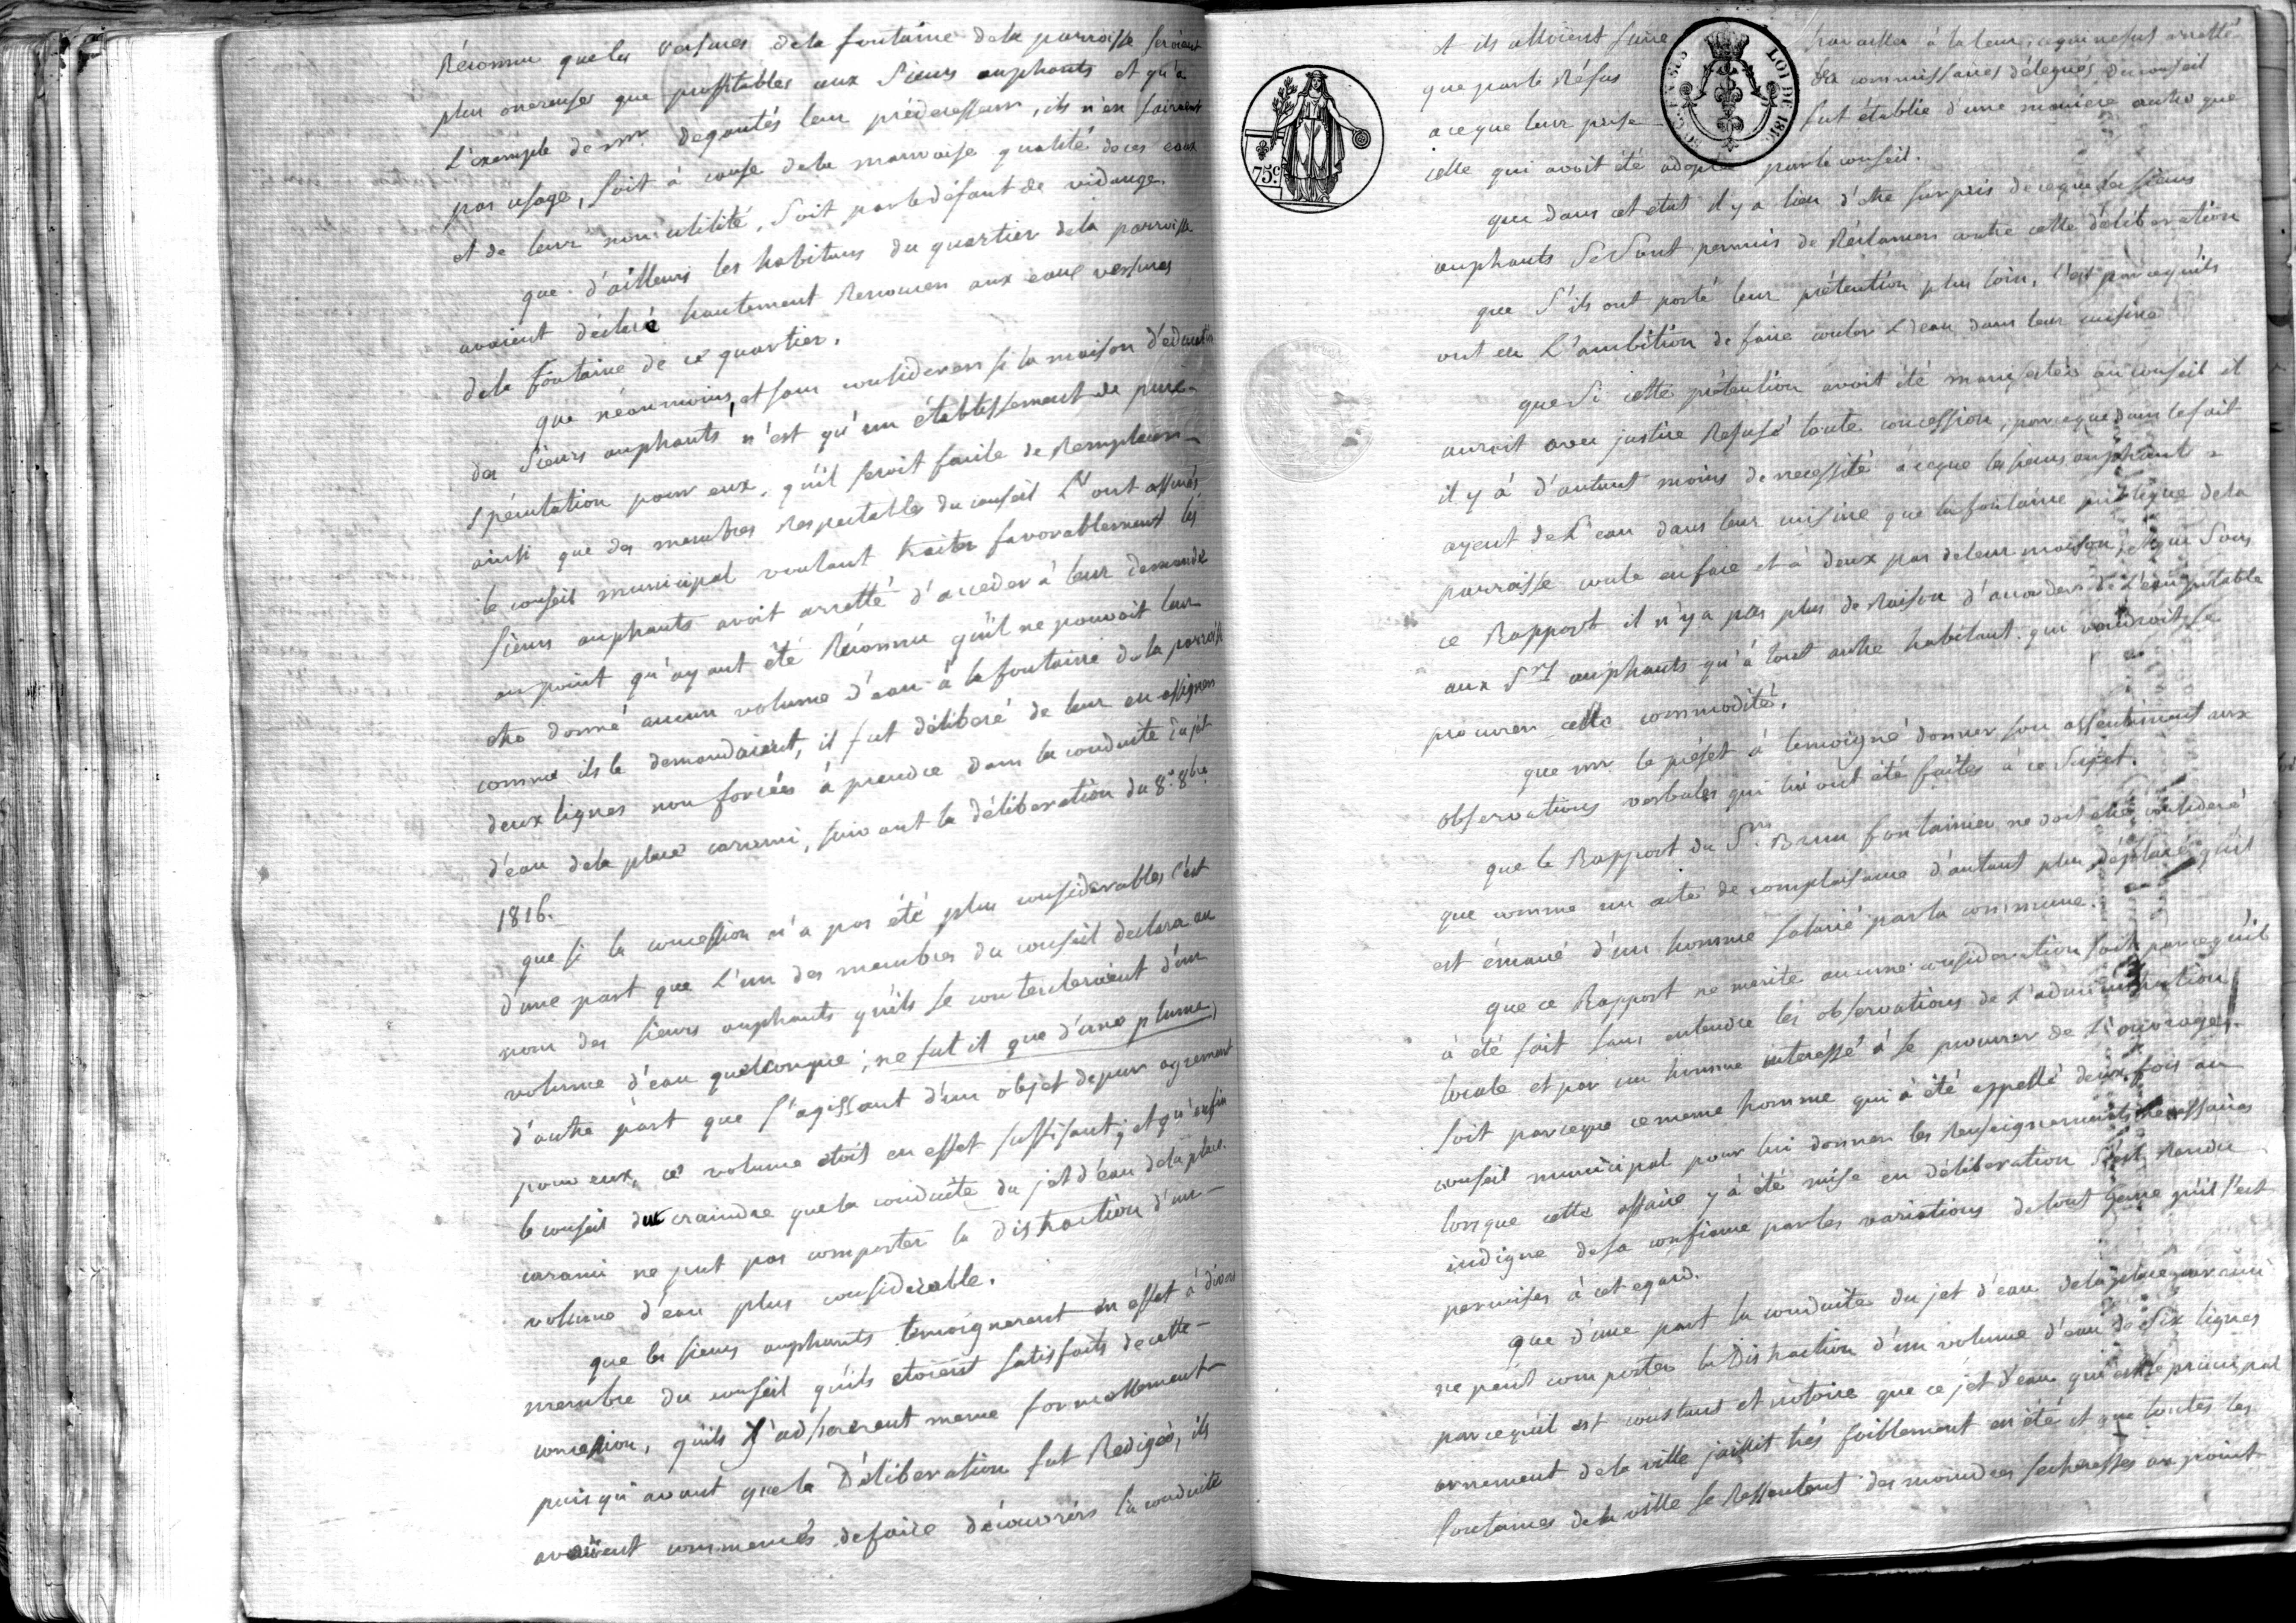 Réconnu que les versures dela fontaine dela parroisse seroient
plus onereuses que proffitables aux Sieurs auphants et qu'a
L'exemple de mr. degantés leur prédecesseur, ils n'en fairoient
pas usage, soit à cause dela mauvaise qualité deces eaux
et de leur non utilité, soit par le défaut de vidange.
que d'ailleurs les habitans du quartier dela parroisse
avaient declaré hautement Renoncer aux eaux versures
dela fontaine de ce quartier.
que néanmoins, et sans considerer si la maison d'éducation
des Sieurs auphants n'est qu'un établissement de pure-
spéculation pour eux, qu'il seroit facile de Remplacer-
ainsi que des membres Respectables du conseil L'ont assurés
le conseil municipal voulant traiter favorablement les
sieurs auphants avoit arretté d'acceder à leur demande
au point qu'ayant été Réconnu qu'il ne pouvoit leur
etre donné aucun volume d'eau à la fontaine dela parroisse
comme ils le demandaient, il fut déliberé de leur en assigner
deux lignes non forcées à prendre dans la conduite du jet
d'eau dela place carami, suivant la déliberation du 8. 8bre
1816.
que si la concession n'a pas été plus considerables c'est
d'une part que L'un des membres du conseil declara au
nom des sieurs auphants qu'ils se contenteroient d'un
volume d'eau quelconque; ne fut il que d'une plume,
d'autre part que s'agissant d'un objet de pur agrement
pour eux, ce volume etoit en effet suffisant; et qu'enfin
le conseil dut craindre que la conduite du jet d'eau dela place
carami ne put pas comporter la distraction d'un-
volume d'eau plus considerable.
que les sieurs auphants temoignerent en effet à divers
membre du conseil qu'ils etoient satisfaits de cette-
concession, qu'ils y adhererent meme formellement
puisqu'avant que la Déliberation fut Redigée, ils
avoient commencés de faire découvrirs la conduite
et ils alloient faire travailler à la leur, ce qui ne fut arretté
que par le Réfus des commissaires délegués du conseil
a ce que leur prise fut établie d'une maniere autre que
celle qui avoit été adoptée par le conseil.
que dans cet etat il y a lieu d'etre surpris de ce que les sieurs
auphants se Sont permis de Réclamer contre cette déliberation
que S'ils ont porté leur prétention plus loin, c'est parcequ'ils
ont eu L'ambition de faire couler L'eau dans leur cuisine
que Si cette prétention avoit été manifestée au conseil il
auroit avec justice Refusé toute concession, parceque dans le fait
il y à d'autant moins de necessité à ceque les sieurs auphant
ayent de L'eau dans leur cuisine que la fontaine publique dela
parroisse coule en face et à deux pas de leur maison, et que Sous
ce Rapport il n'y a pas plus de Raison d'accorder de L'eau potable
aux Srs auphants qu'à tout autre habitant qui voudroit se
procurer cette commodité.
que mr. le préfet à temoigné donner son assentiment aux
observations verbales qui lui ont été faites à ce Sujet.
que le Rapport du Sr. Brun fontainier ne doit etre consideré
que comme un acte de complaisance d'autant plus déplacé qu'il
est émané d'un homme salarié par la commune.
que ce Rapport ne merite aucune consideration soit parcequ'il
à été fait sans entendre les observations de L'administration
locale et par un homme interessé à se procurer de L'ouvrage,
soit parceque ce meme homme qui à été appellé deux fois au
conseil municipal pour lui donner les Renseignements necessaires
lorsque cette affaire y à été mise en déliberation s'est Rendu
indigne de sa confiance par les variations de tout genre qu'il s'est
permises à cet egard.
que d'une part la conduite du jet d'eau dela place carami
ne peut comporter la Distraction d'un volume d'eau de Six lignes
parcequ'il est constant et notoire que ce jet d'eau qui est le principal
ornement dela ville jaillit très foiblement en été et que toutes les
fontaines dela ville se Ressentent des moindres secheresses au point
75c
LOI DE 1816